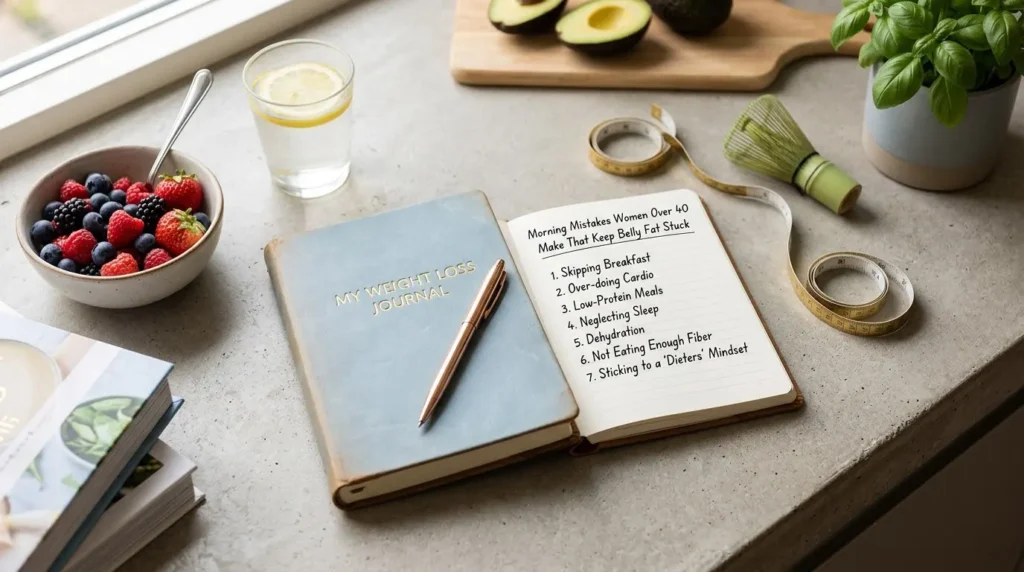 MY WEIGHT LOSS
JOURNAL
Morning Mistakes Women Over 40
Make That Keep Belly Fat Stuck
1. Skipping Breakfast
2. Over-doing Cardio
3. Low-Protein Meals
4. Neglecting Sleep
5. Dehydration
6. Not Eating Enough Fiber
7. Sticking to a 'Dieters' Mindset